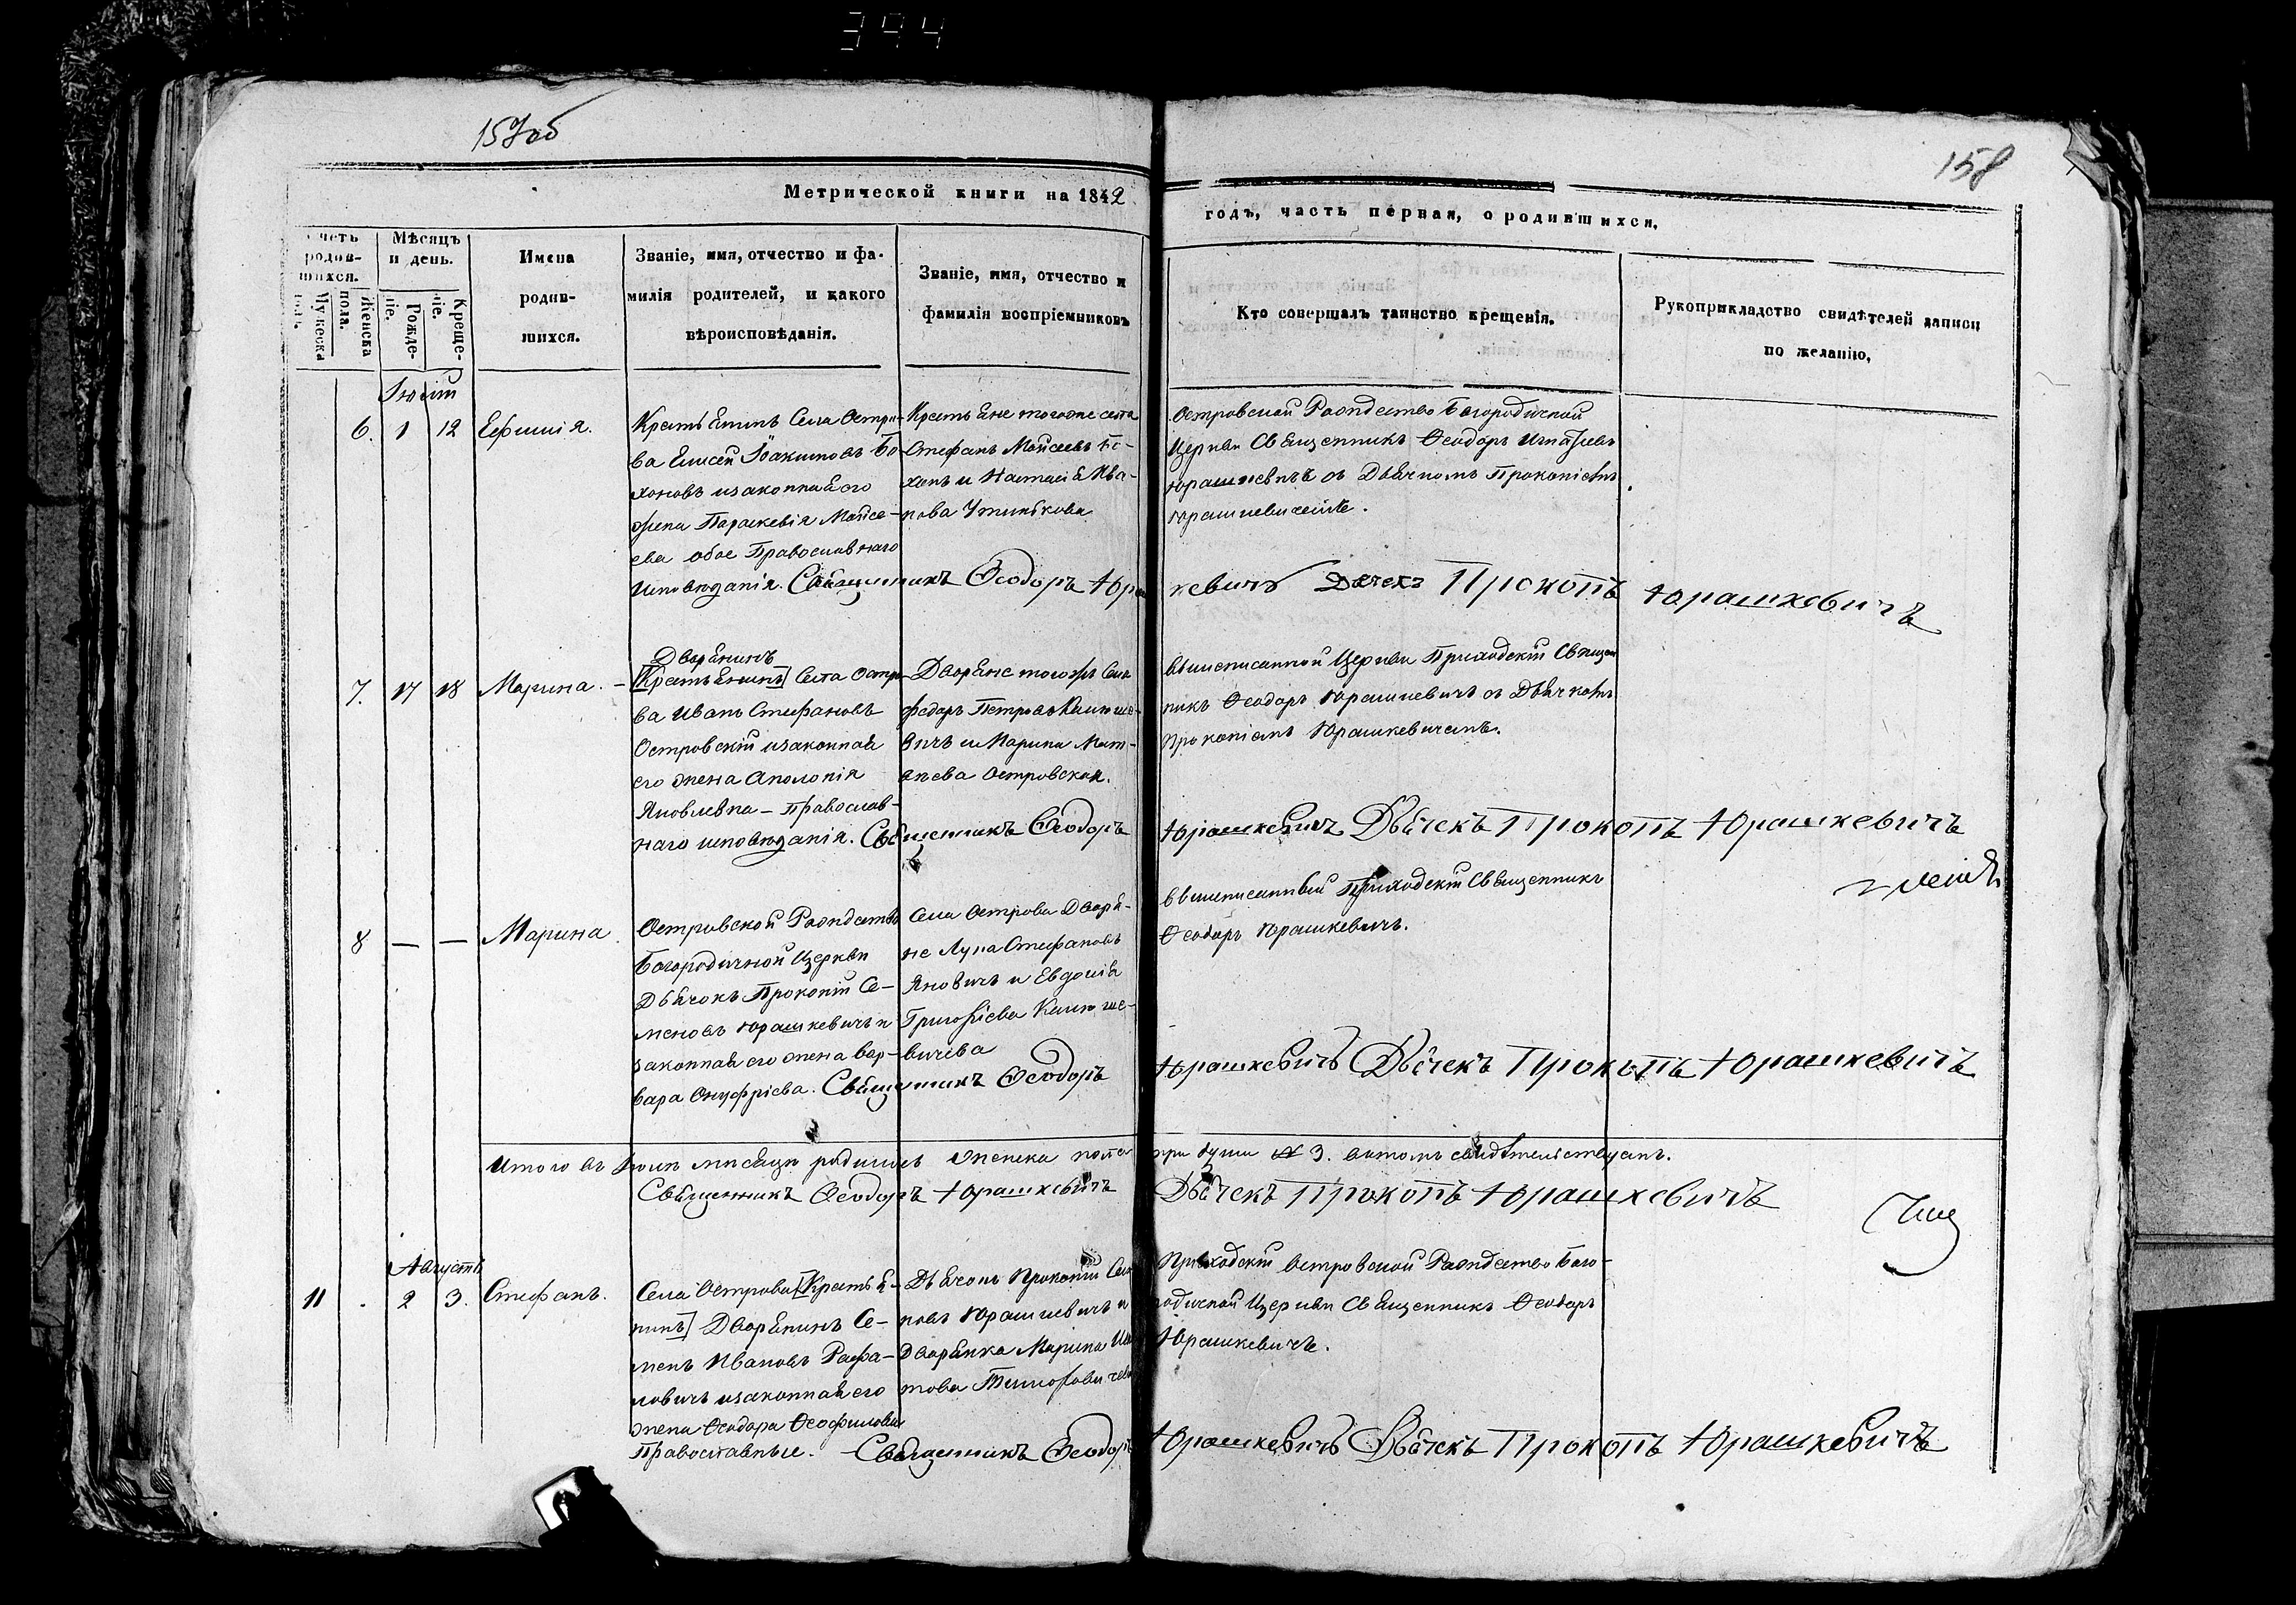 344
157об
158
Метрической книги на 1842
годъ, часть первая, о родившихся.
родив-
шихся.
Мужеска
Женска
пола.
Мѣсяцъ
и день.
Рожде-
ніе.
Креще-
ніе.
Имена
родив-
шихся.
Званіе, имя, отчество и фа-
милія родителей, и какого
вѣроисповѣданія.
Званіе, имя, отчество и
фамилія воспріемниковъ
Кто совершалъ таинство крещенія.
Рукоприкладство свидѣтелей записи
по желанію,
6. 1 12
Крестьянинъ Села Остро-
ва Елисей Іоакимовъ Бо-
хоновъ и законная его
жена Параскевія Мойсе-
ева обое Православнаго
Исповѣданія.
Крестьяне тогоже села
Стефанъ Мойсеевъ
и Настасія Ива-
нова
Островской Рождество Богородичной
Церкви Священникъ Ѳеодоръ
Юрашкевичъ съ Дьячкомъ Прокопіемъ
Юрашкевичемъ.
Священникъ Ѳеодоръ Юраш
кевичъ Дьячекъ Прокопъ Юрашкевичъ
7. 17 18 Марина.
Дворянинъ
[Крестьянинъ] Села Остро-
ва Иванъ Стефановъ
Островскій и законная
его жена Аполонія
Яковлевна – Православ-
наго исповѣданія.
Дворяне тогожъ Села
Федоръ Петровъ Климаше-
вичъ и Марина Мат-
Островская.
вышеписанной Церкви Приходскій Священ
никъ Ѳеодоръ Юрашкевичъ съ Дьячкомъ
Прокопіемъ Юрашкевичемъ.
Священникъ Ѳеодоръ
Юрашкевичъ Дьячекъ Прокопъ Юрашкевичъ
8 — — Марина.
Островской Рождество
Богородичной Церкви
Дьячокъ Прокопій Се-
меновъ Юрашкевичъ и
законная его жена Вар-
вара Онуфріева.
Села Острова Дворя-
не Лука Стефановъ
Яновичъ и Евдокія
Григоріева Климаше-
вичева
вышеписанный Приходскій Священникъ
Ѳеодоръ Юрашкевичъ.
Священникъ Ѳеодоръ
Юрашкевичъ Дьячекъ Прокопъ Юрашкевичъ
Итого въ Іюлѣ мѣсяцѣ родилось женска пола
три души 3. въ томъ свидѣтельствуемъ.
Священникъ Ѳеодоръ Юрашкевичъ
Дьячекъ Прокопъ Юрашкевичъ
Августъ
11 . 2 3. Стефанъ.
Села Острова [Крестья-
нинъ] Дворянинъ Се-
менъ Ивановъ Рафа-
ловичъ и законная его
жена Ѳеодора Ѳеофилова
Православные.
Дьячокъ Прокопій Семе
новъ Юрашкевичъ и
Дворянка Марина
Приходскій Островской Рождество Бого-
родичной Церкви Священникъ Ѳеодоръ
Юрашкевичъ.
Священникъ Ѳеодоръ
Юрашкевичъ Дьячекъ Прокопъ Юрашкевичъ